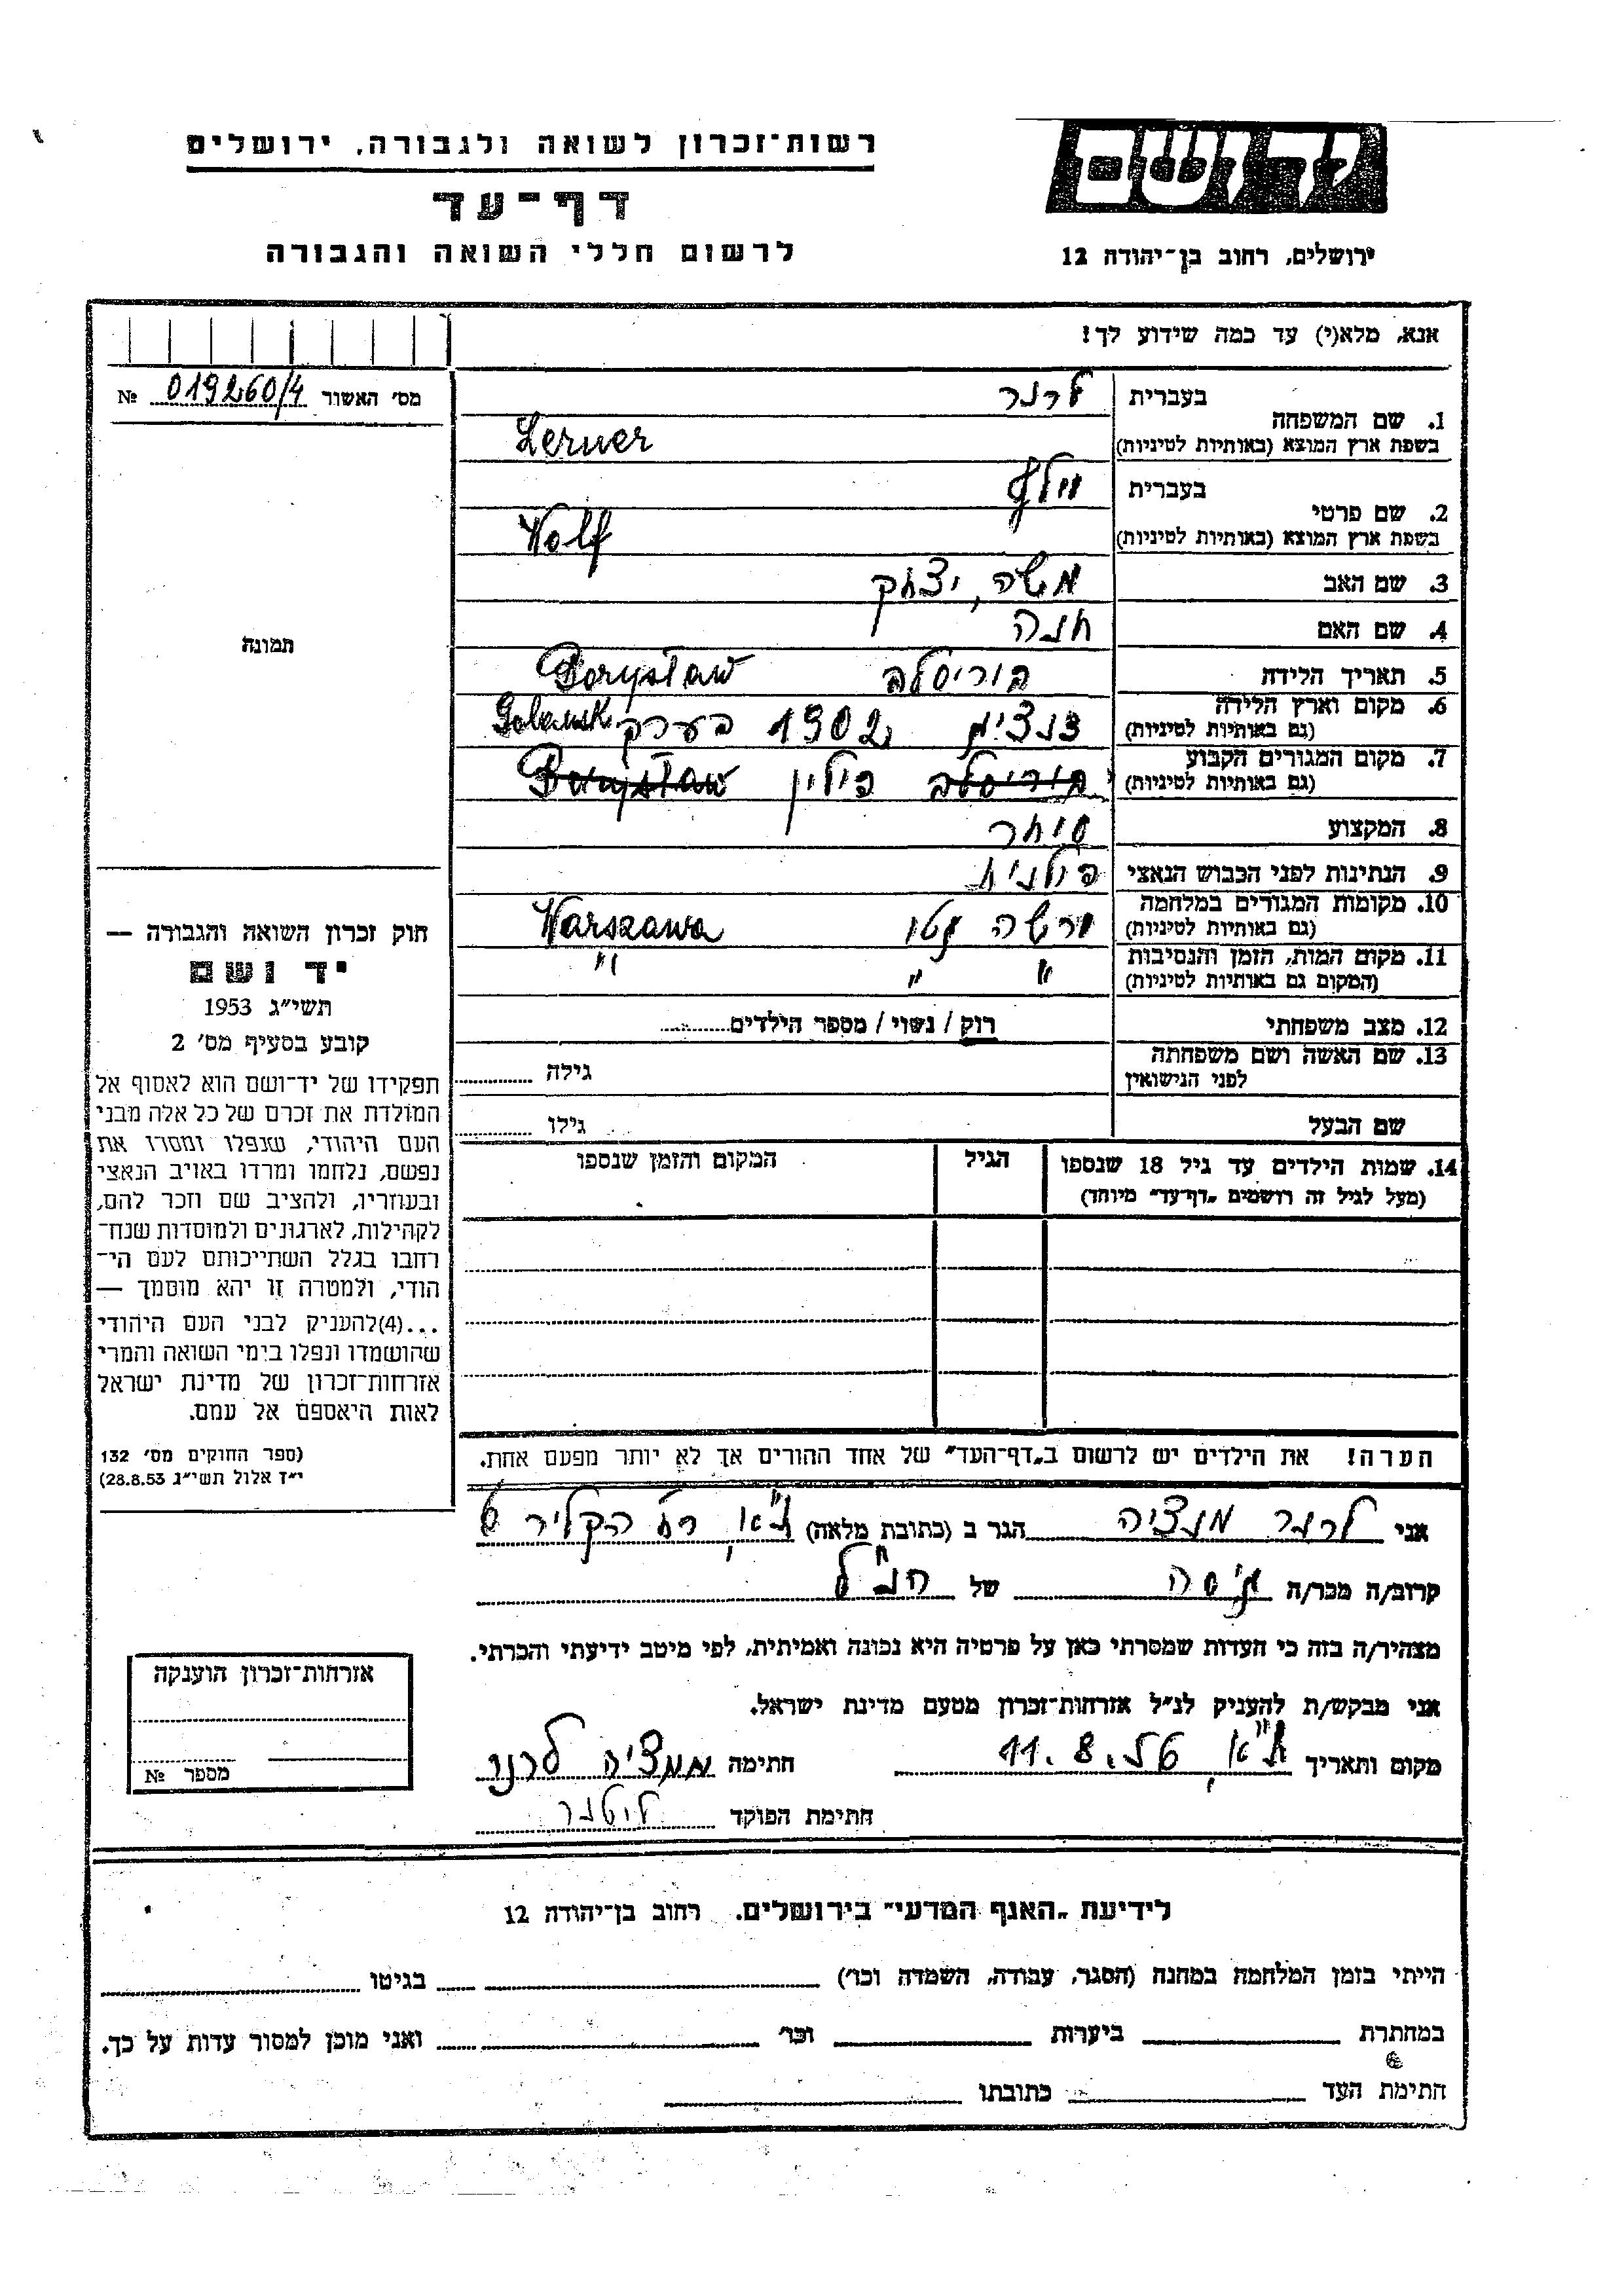 רשות־זכרון לשואה ולגבורה, ירושלים
יד ושם
דף־עד
לרשום חללי השואה והגבורה
ירושלים, רחוב בן־יהודה 12
אנא, מלא(י) עד כמה שידוע לך!
מס׳ האשור № 019260/4
בעברית לרנר
1. שם המשפחה
בשפת ארץ המוצא (באותיות לטיניות) Lerner
בעברית וולף
2. שם פרטי
בשפת ארץ המוצא (באותיות לטיניות) Wolf
3. שם האב משה, יצחק
4. שם האם חנה
תמונה
5. תאריך הלידה בוריסלב Borysław
6. מקום וארץ הלידה 1902 בערך
(גם באותיות לטיניות)
7. מקום המגורים הקבוע בוריסלב פולין Borysław
(גם באותיות לטיניות)
8. המקצוע סוחר
9. הנתינות לפני הכבוש הנאצי פולנית
10. מקומות המגורים במלחמה ורשה גטו Warszawa
(גם באותיות לטיניות)
11. מקום המות, הזמן והנסיבות " " "
(המקום גם באותיות לטיניות)
12. מצב משפחתי רוק / נשוי / מספר הילדים
13. שם האשה ושם משפחתה
לפני הנישואין גילה
שם הבעל גילו
14. שמות הילדים עד גיל 18 שנספו הגיל המקום והזמן שנספו
(מעל לגיל זה רושמים „דף־עד״ מיוחד)
חוק זכרון השואה והגבורה —
יד ושם
תשי״ג 1953
קובע בסעיף מס׳ 2
תפקידו של יד־ושם הוא לאסוף אל
המולדת את זכרם של כל אלה מבני
העם היהודי, שנפלו ומסרו את
נפשם, נלחמו ומרדו באויב הנאצי
ובעוזריו, ולהציב שם וזכר להם,
לקהילות, לארגונים ולמוסדות שנח־
רחבו בגלל השתייכותם לעם הי־
הודי, ולמטרה זו יהא מוסמך —
...(4)להעניק לבני העם היהודי
שהושמדו ונפלו בימי השואה והמרי
אזרחות־זכרון של מדינת ישראל
לאות היאספם אל עמם.
(ספר החוקים מס׳ 132
י״ז אלול תשי״ג 28.8.53)
הערה! את הילדים יש לרשום ב„דף־העד״ של אחד ההורים אך לא יותר מפעם אחת.
אני לרנר מנציה הגר ב (כתובת מלאה) ת"א, רח הקליר 6
קרוב/ה מכר/ה גיסה של הנ"ל
מצהיר/ה בזה כי העדות שמסרתי כאן על פרטיה היא נכונה ואמיתית, לפי מיטב ידיעתי והכרתי.
אני מבקש/ת להעניק לנ״ל אזרחות־זכרון מטעם מדינת ישראל.
מקום ותאריך ת"א, 11.8. חתימה מנציה לרנר
חתימת הפוקד
אזרחות־זכרון הוענקה
מספר №
לידיעת „האגף המדעי״ בירושלים. רחוב בן־יהודה 12
הייתי בזמן המלחמה במחנה (הסגר, עבודה, השמדה וכו׳) בגיטו
במחתרת ביערות וכו׳ ואני מוכן למסור עדות על כך.
חתימת העד כתובתו